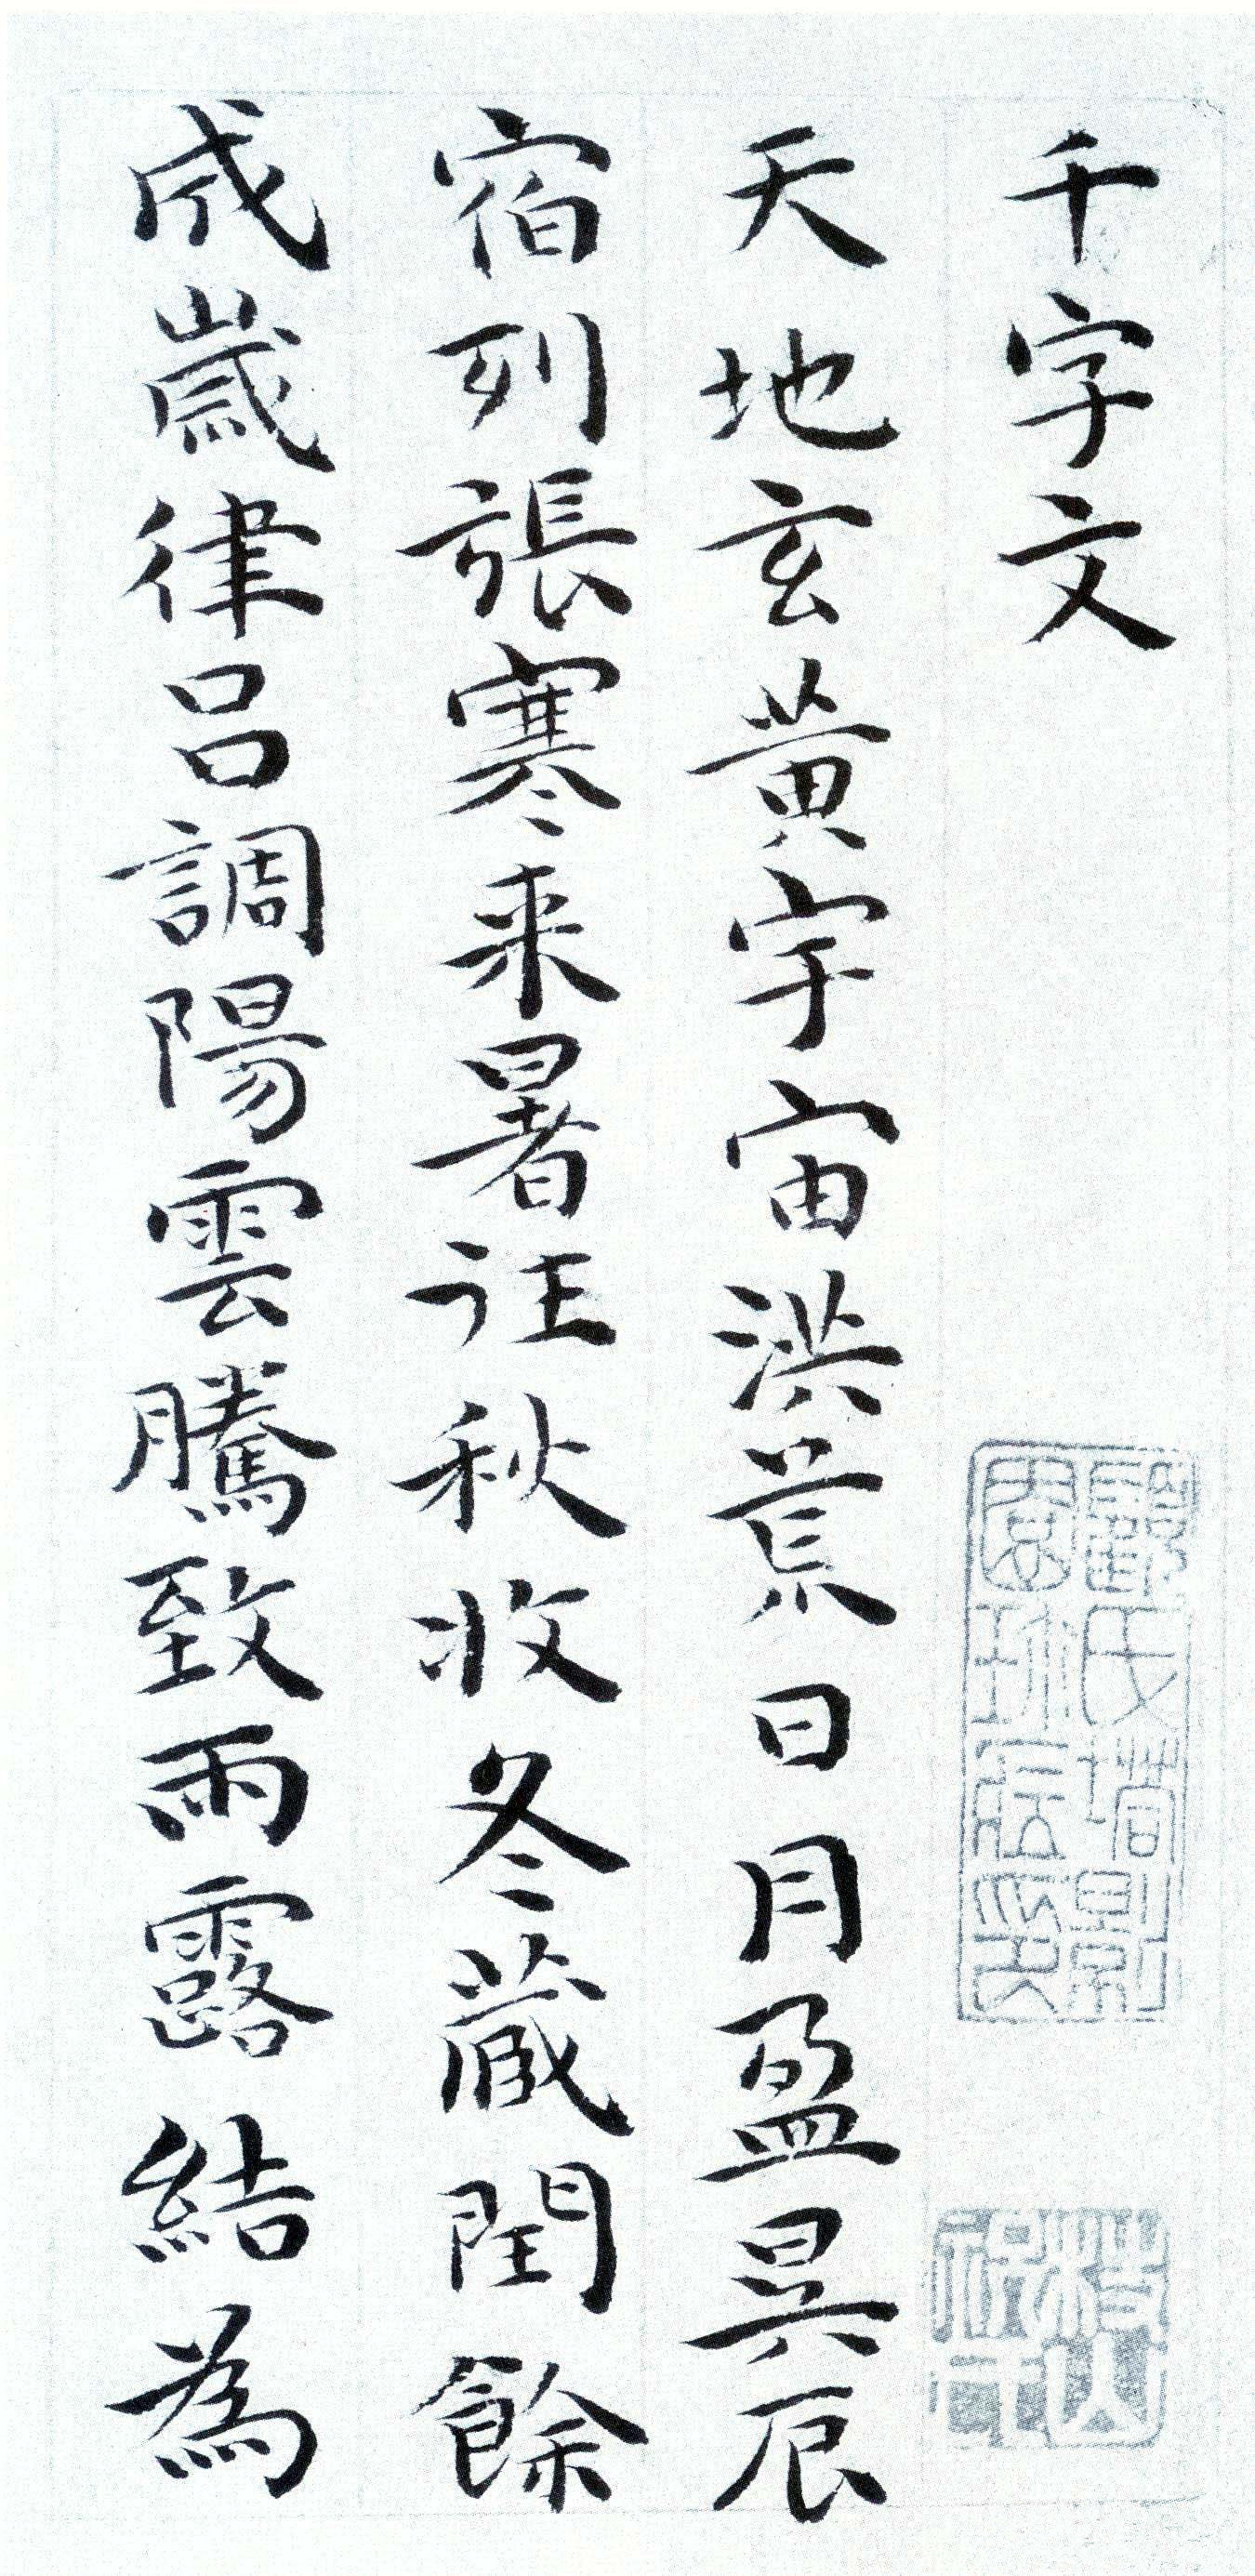 千字文
天地玄黄宇宙洪荒日月盈昃辰
宿列張寒来暑往秋收冬藏閏餘
成歲律呂調陽雲騰致雨露結為